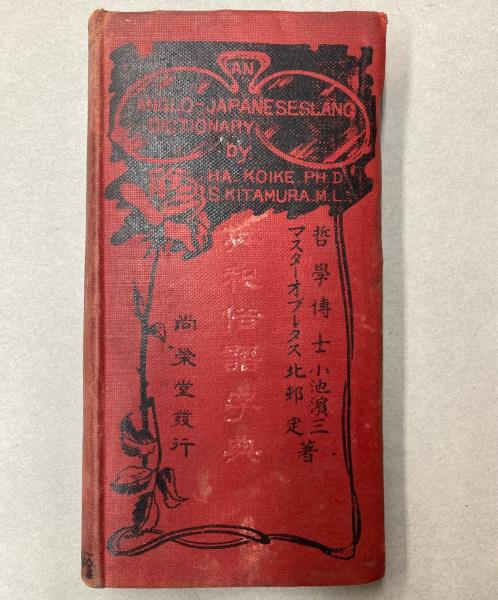 AN
ANGLO-JAPANESE SLANG
DICTIONARY
by
HA. KOIKE. PH.D.
S. KITAMURA. M.L.
哲學博士 小池濱三
マスターオブレタス 北邨定 著
俗語字典
尚榮堂發行